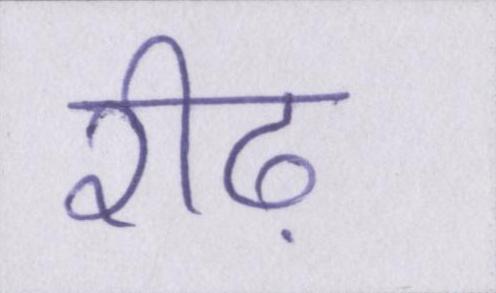 रीढ़